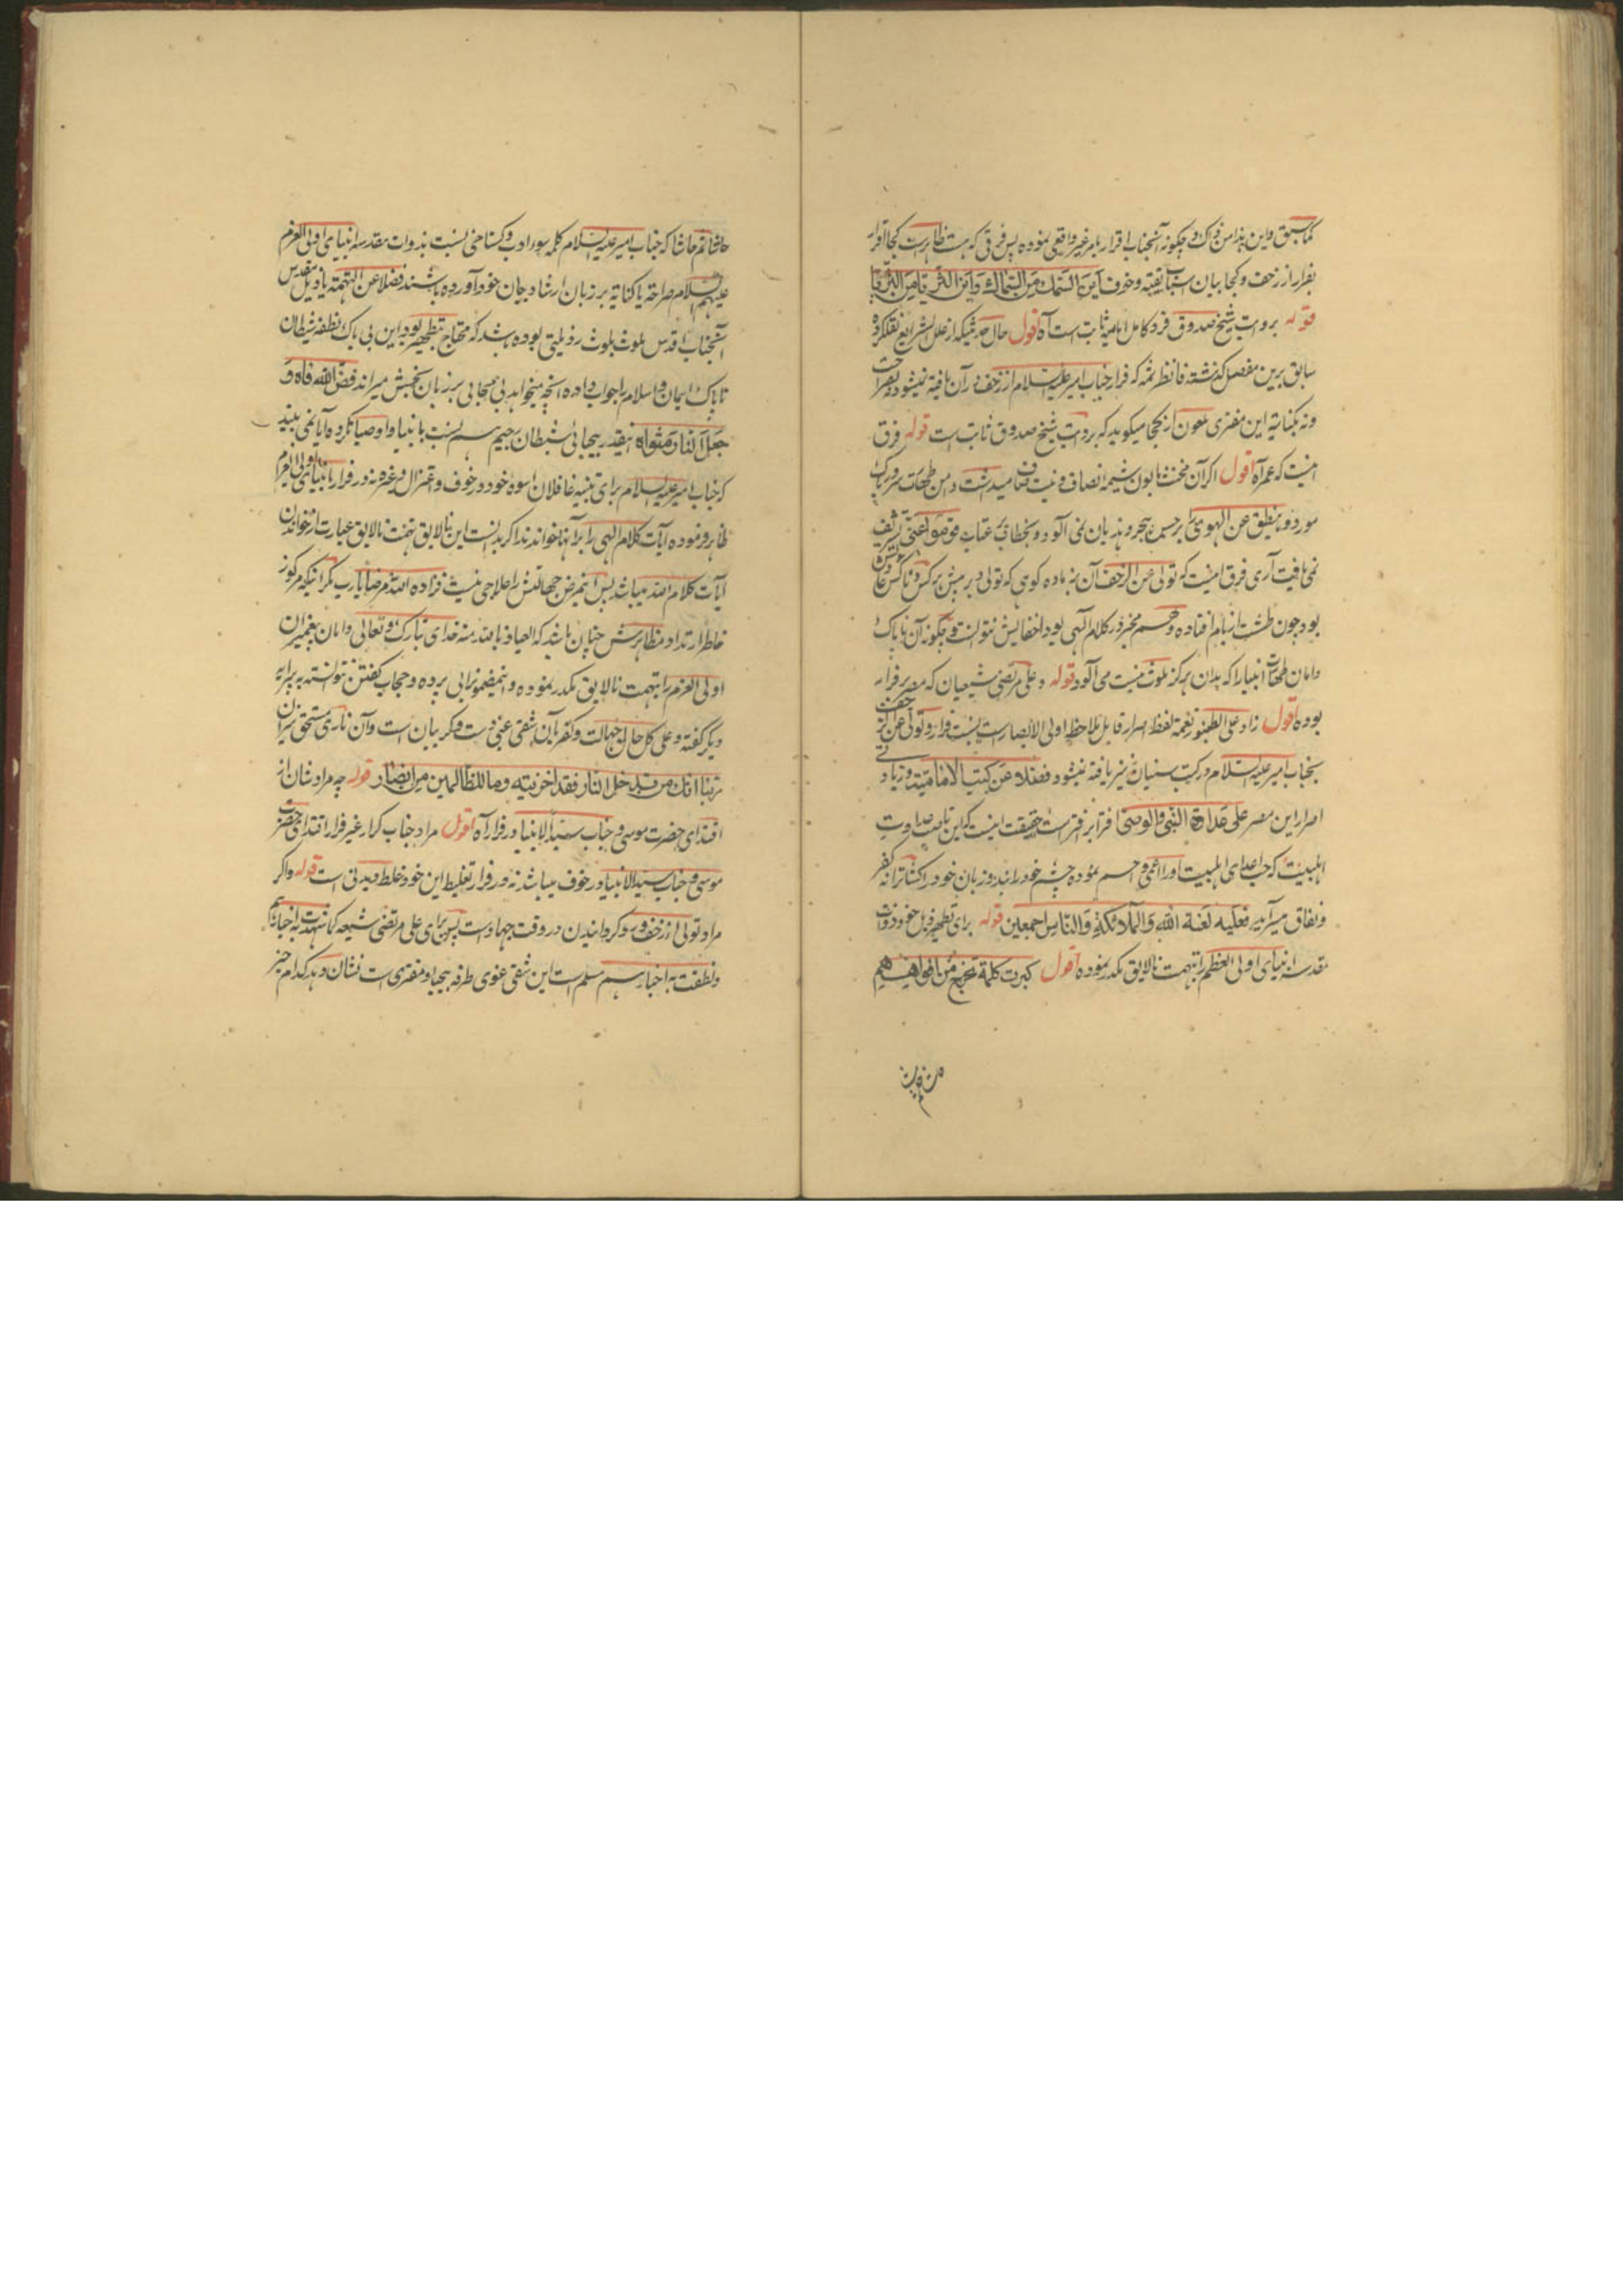 کما سبق واین هذا من ذلک و چگونه آنجناب اقرار بامر غیر واقعی نموده پس فرقی که هست ظاهر است کجا اقرار
بفرار از زحف و کجا بیان اسباب تقیه و خوف این السمک من السماک و این الثری من الثریا
قوله بروایت شیخ صدوق فرد کامل امامیه ثابت است آه اقول حال حدیثیکه از علل الشرایع نقل کرده
سابق برین مفصل گذشته فانظر ثمه که فرار جناب امیر علیه السلام از زحف در آن یافته نمیشود نه بصراحت
ونه بکنایه این مفتری ملعون از کجا میگوید که بروایت شیخ صدوق ثابت است قوله فرق
اینست که عمر آه اقول اگر آن مخنث مابون شیمه انصاف و نیت صاف میداشت دامن طهارت سرورپاک
مورد وما ینطق عن الهوی را برجست هجر و هذیان نمی آلود و بخطاب عتاب قوموا عنی تشریف
نمی یافت آری فرق اینست که تولی عن الزحف آن بز ماده کوهی که تولا و بر منبر برکس و ناکس
بود چون طشت از بام افتاده و هم مخبر در کلام الهی بود اخفایش نتوانست و چگونه آن ناپاک
دامان طهارت انبیا را که بدان هرگز ملوث نیست می آلود قوله و علی مرتضی شیعیان که مصر بر فرار
بوده اقول زاد علی الطنبور نغمه لفظ اصرار قابل ملاحظه اولی الابصار است نسبت فرار و تولی عن الزحف
بجناب امیر علیه السلام در کتب سنیان نیز یافته نمیشود فضلا عن کتب الامامیة و زیادتی
اصرار این مصر علی عداوة النبی والوصی افترا بر افترا است حقیقت اینست که این ناصب عداوت
اهلبیت که حب اعدای اهلبیت او را اعمی و اصم نموده چشم خود را بند و زبان خود را کشاده ترانه کفر
و نفاق میسراید فعلیه لعنة الله والملائکة والناس اجمعین قوله برای تطهیر ذیل خود ذوات
مقدسه انبیای اولی العظم را بتهمت نالایق مکدر نموده اقول کبرت کلمة تخرج من افواههم
حاشا ثم حاشا که جناب امیر علیه السلام کلمه سوء ادب و گستاخی نسبت بذوات مقدسه انبیای اولی العزم
علیهم السلام صراحة یا کنایة بر زبان ارشاد بیان خود آورده باشند فضلا عن التهمة یا ذیل مقدس
آنجناب اقدس بلوث رذیلتی بوده باشد که محتاج بتطهیر بود این بی باک نطفه شیطان
ناپاک ایمان و اسلام را جواب داده آنچه میخواهد بی محابا بی بر زبان نجسش میراند فض الله فاه و
جعل النار مثواه اینقدر بیحیائی شیطان رجیم هم نسبت بانبیا و اوصیا نکرده آیا نمی بیند
که جناب امیر علیه السلام برای تنبیه غافلان اسوه خود در خوف و اعتزال و غیره نه در فرار بانبیای اولی العزم
ظاهر فرموده آیات کلام الهی را برآنها خواندند اگر بدانست این نالایق تهمت نالایق عبارت از خواندن
آیات کلام الله میباشد پس این مرض جهالتش را علاجی نیست فزاده الله مرضا یارب مگر اینکه مرکوز
خاطر ارتداد مظاهرش چنان باشد که العیاذ بالله منه خدای تبارک و تعالی دامان پیغمبران
اولی العزم را بتهمت نالایق مکدر نموده و اینمضمون را بی پرده و حجاب گفتن نتوانسته به پیرایه
دیگر گفته و علی کل حال جهالت و کفر این شقی غبی دست و گریبان است و آن ناری مستحق نیران
ربنا انک من تدخل النار فقد اخزیته وما للظالمین من انصار قوله چه مراد شان از
اقتدای حضرت موسی و جناب سید الانبیا در فرار آه اقول مراد جناب کرار غیر فرار اقتدای حضرت
موسی و جناب سید الانبیا در خوف میباشد نه در فرار تغلیط این خود غلط دیدنی است قوله واگر
مراد تولی از زحف و رو گردانیدن در وقت جهاد است پس برای علی مرتضی شیعه کما شهدت به اخبارهم
ونطقت به اخبارهم مسلم است این شقی غوی طرفه بیحیا و مفتری است نشان دهد که کدام خبر